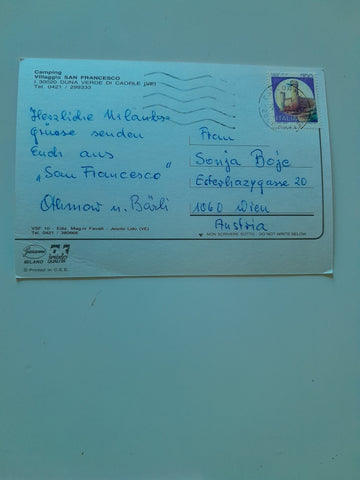 Camping
Villaggio SAN FRANCESCO
I 30020 DUNA VERDE DI CAORLE (VE)
Tel. 0421 / 299333
ITALIA
Herzliche Urlaubs-
grüsse senden
Euch aus
„San Francesco"
Othmar u. Bärli
Frau
Sonja Boje
Esterhazygasse 20
1060 Wien
Austria
VSF 10 - Ediz. Mag.ri Favali - Jesolo Lido (VE)
Tel. 0421 / 380666
NON SCRIVERE SOTTO - DO NOT WRITE BELOW
MILANO
QUALITÀ
© Printed in C.E.E.